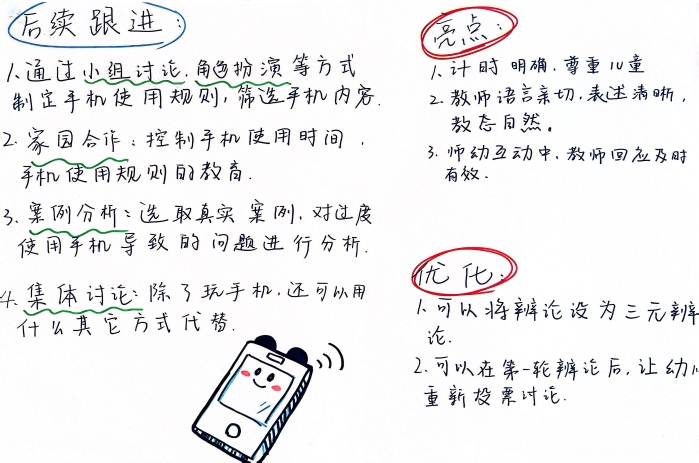 后续跟进:
1.通过小组讨论、角色扮演等方式
制定手机使用规则,筛选手机内容.
2.家园合作:控制手机使用时间、
手机使用规则的教育.
3.案例分析:选取真实案例,对过度
使用手机导致的问题进行分析.
4.集体讨论:除了玩手机,还可以用
什么其它方式代替.
亮点:
1.计时明确.尊重儿童
2.教师语言亲切,表述清晰,
教态自然。
3.师幼互动中,教师回应及时
有效.
优化:
1.可以将辨论设为三元辨
论.
2.可以在第一轮辨论后,让幼儿
重新投票讨论.